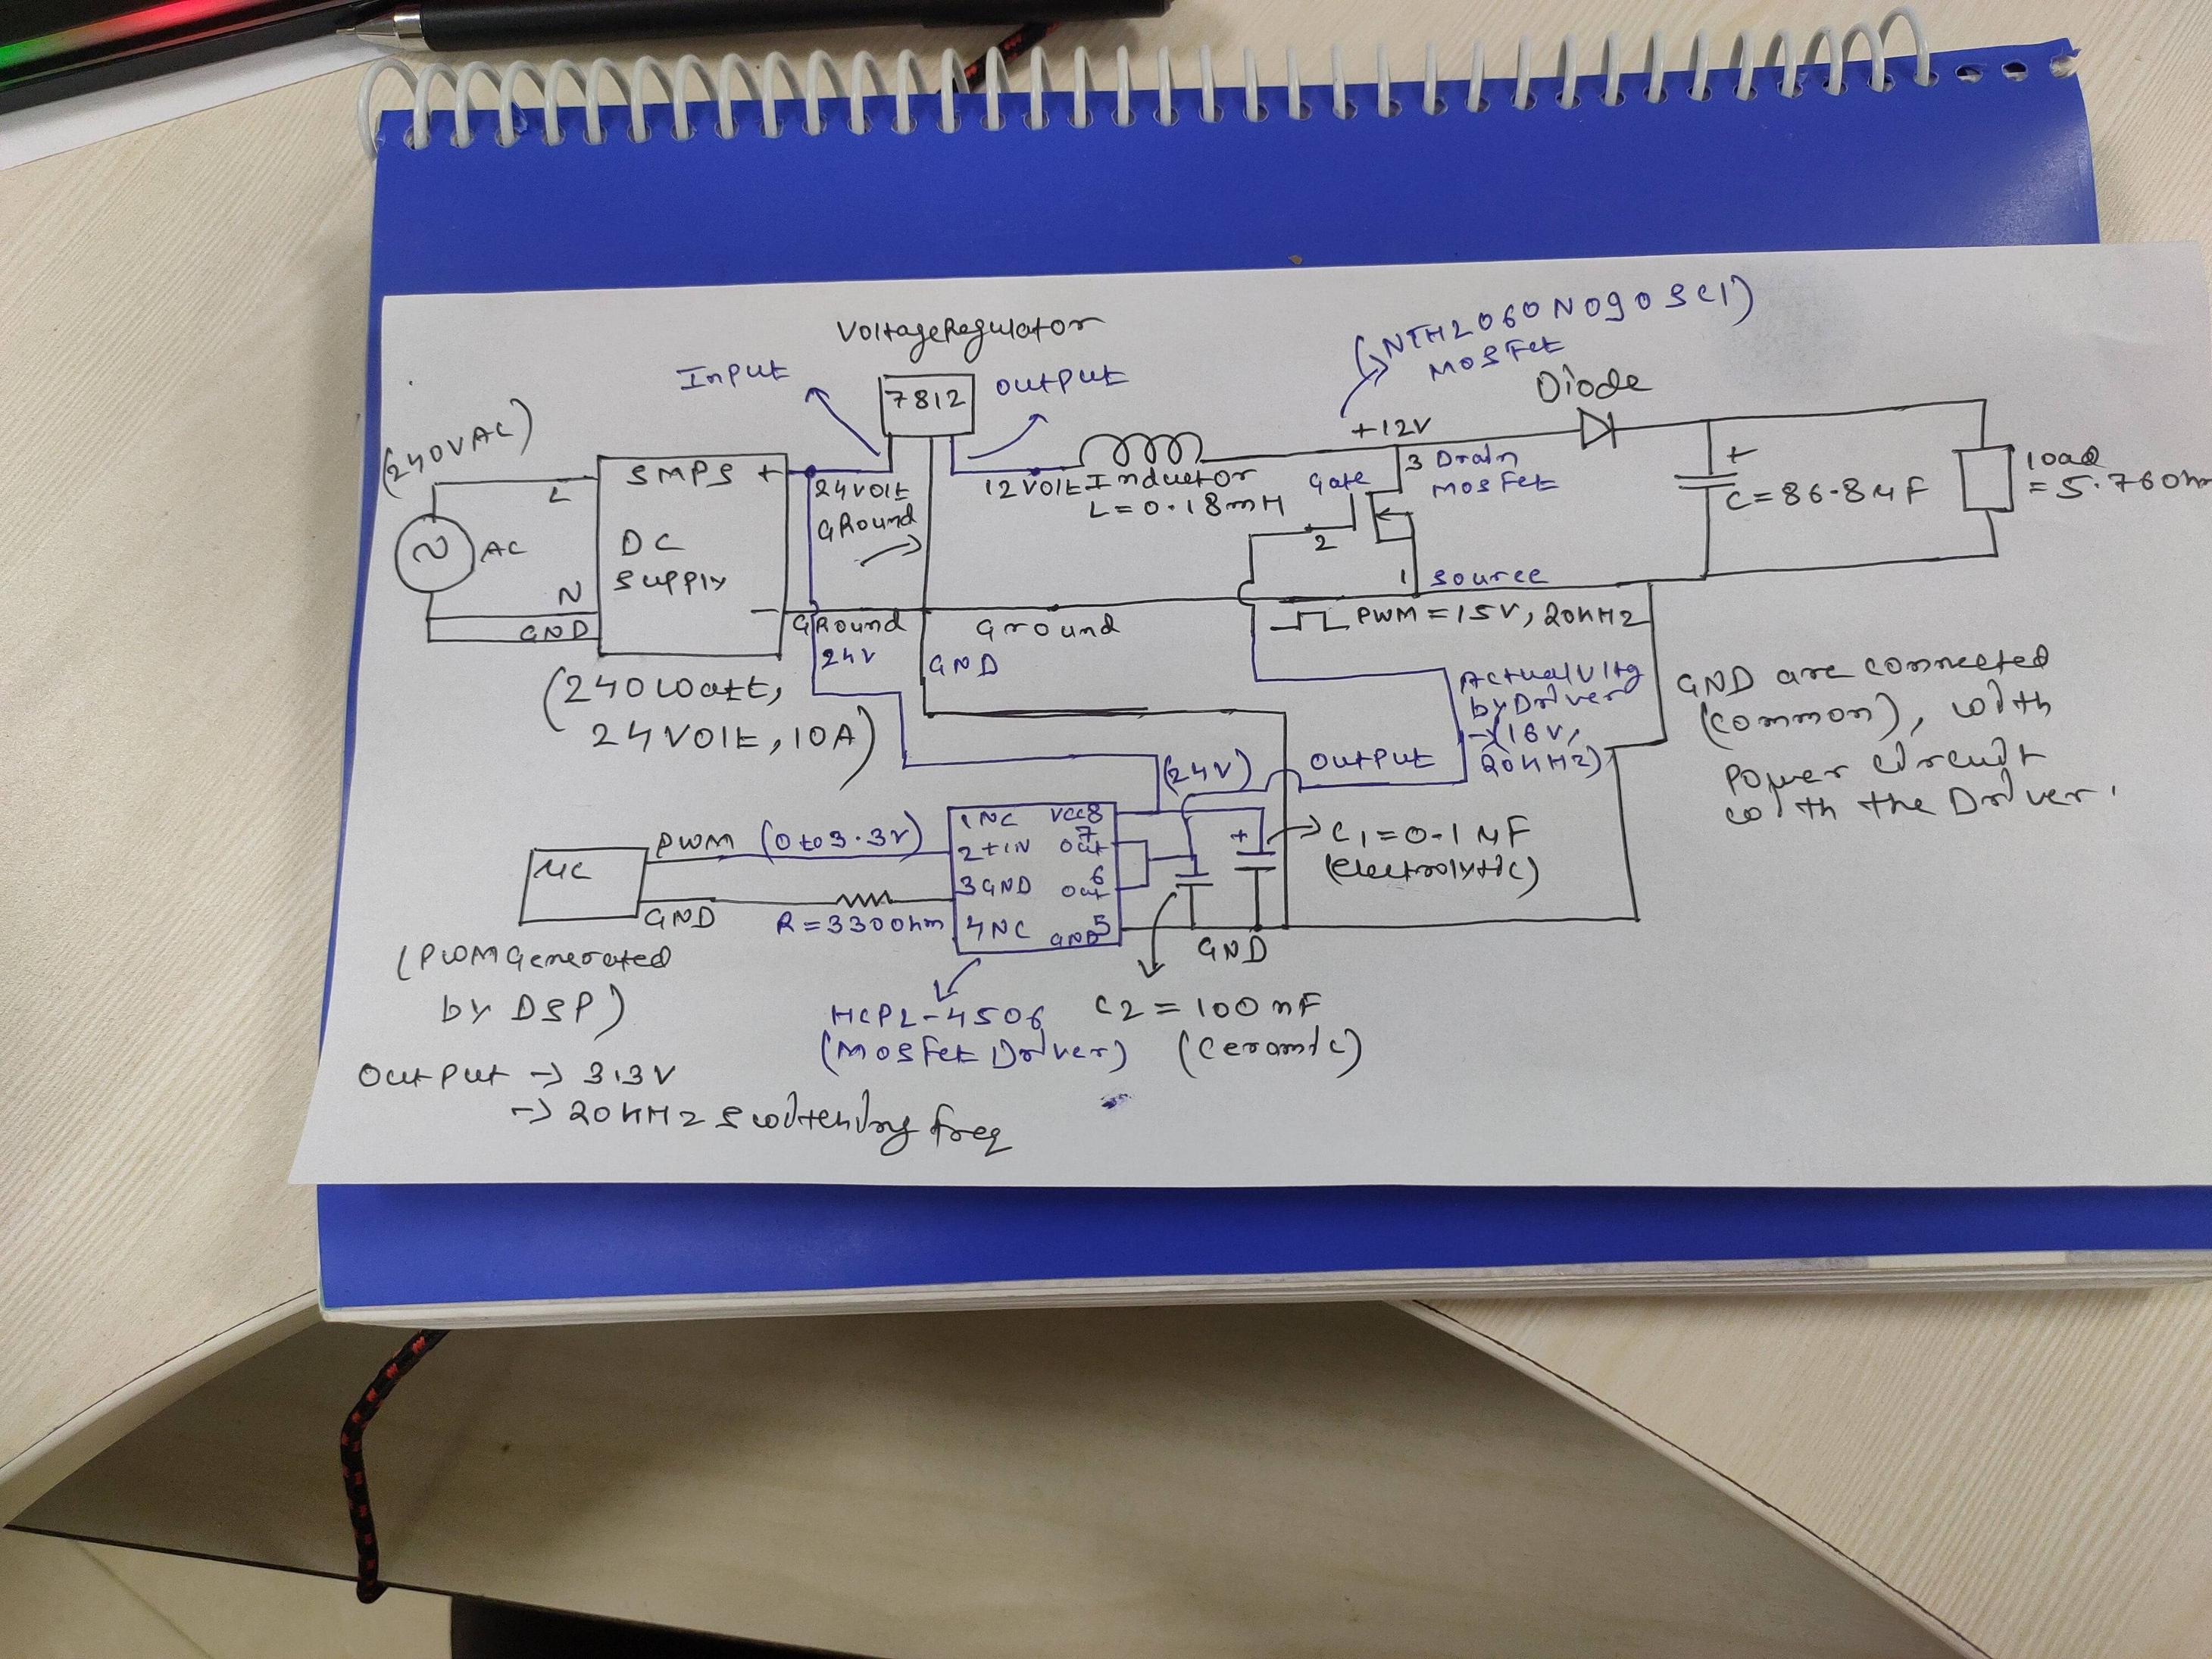 VoltageRegulator
(NTH2060N090SC1)
MOSFet
Input
7812
output
Diode
(240VAC)
L
SMPS +
24VOlt
GRound
12VOlt
Inductor
L=0.18mH
+12V
Gate
3 Drain
MOSFet
2
+
C=86.8uF
load
=5.76Ohm
AC
DC
Supply
N
GND
-
1 Source
PWM=15V, 20kHz
GRound
Ground
24V
GND
(240Watt,
24VOlt, 10A)
ActualVltg
by Driver
→(16V,
20kHz)
GND are connected
(common), with
Power circuit
with the Driver.
(24V)
output
uC
PWM (0 to 3.3V)
GND
R=330Ohm
1NC VCC8
2+IN 7 Out
3GND 6 Out
4NC GND5
+
C1=0.1uF
(electrolytic)
GND
(PWMGenerated
by DSP)
HCPL-4506
(MOSFet Driver)
C2=100nF
(Ceramic)
Output → 3.3V
→ 20kHz Switching freq